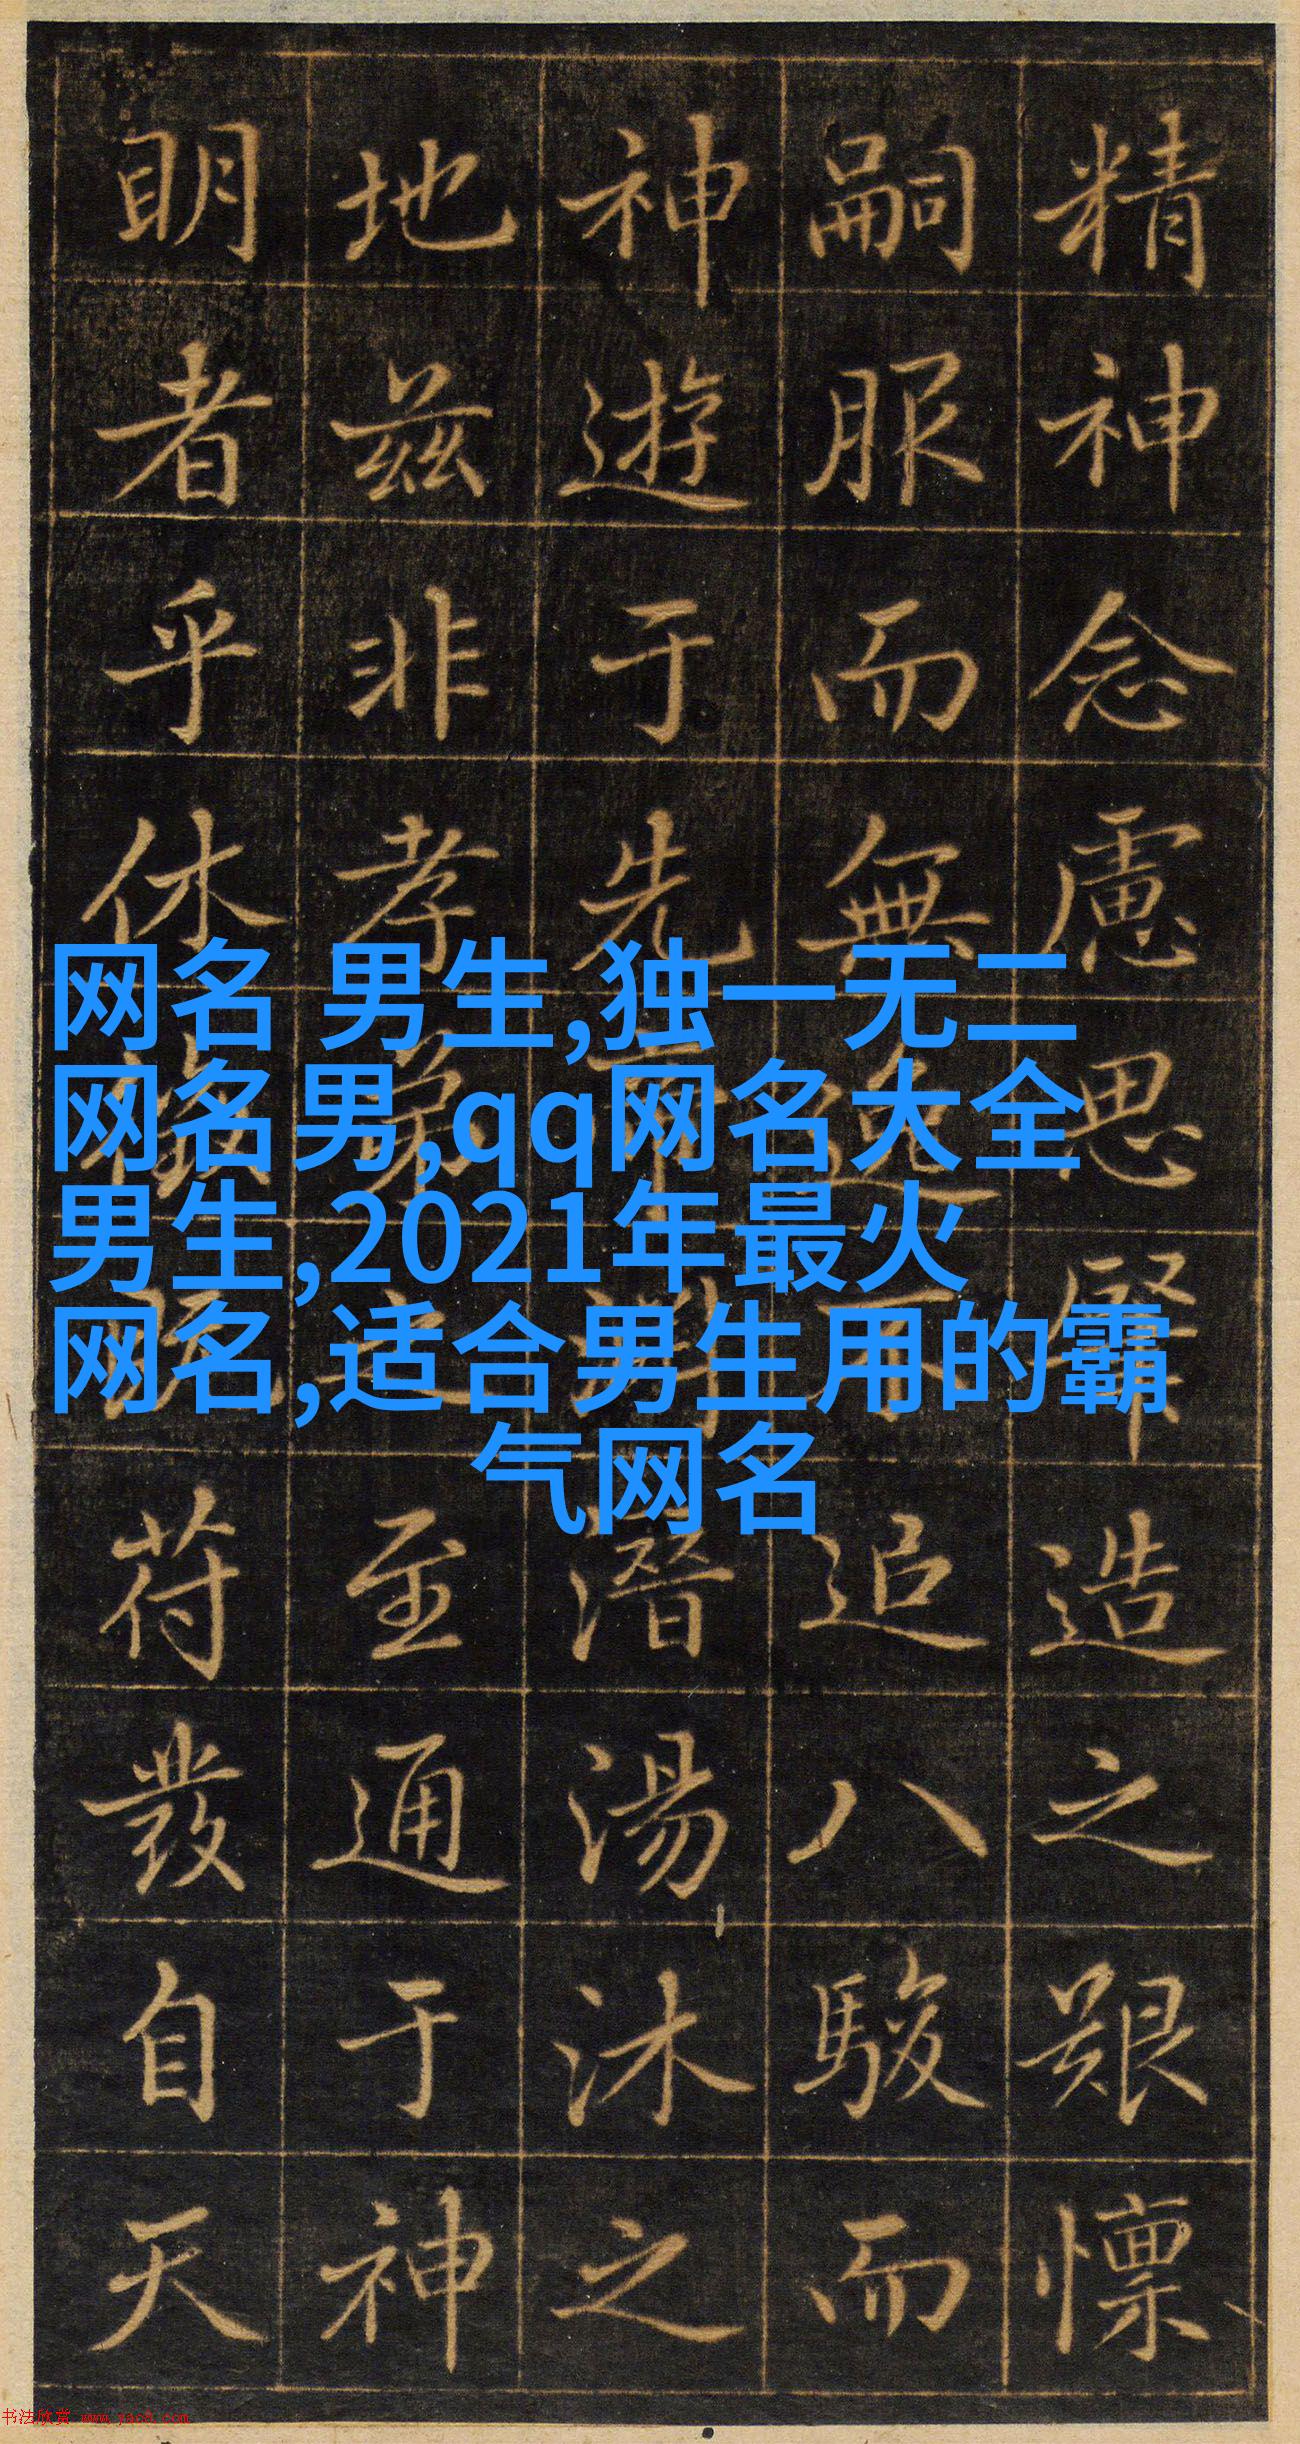 精神念慮思造之艱懍
嗣服而無逸不追八駿而
神遊于先潛湯沐之
地茲非孝弟之至通于神
明者乎休徵苻發自天
网名 男生,独一无二
网名男,qq网名大全
男生,2021年最火
网名,适合男生用的霸
气网名
书法欣赏 www.yac8.com